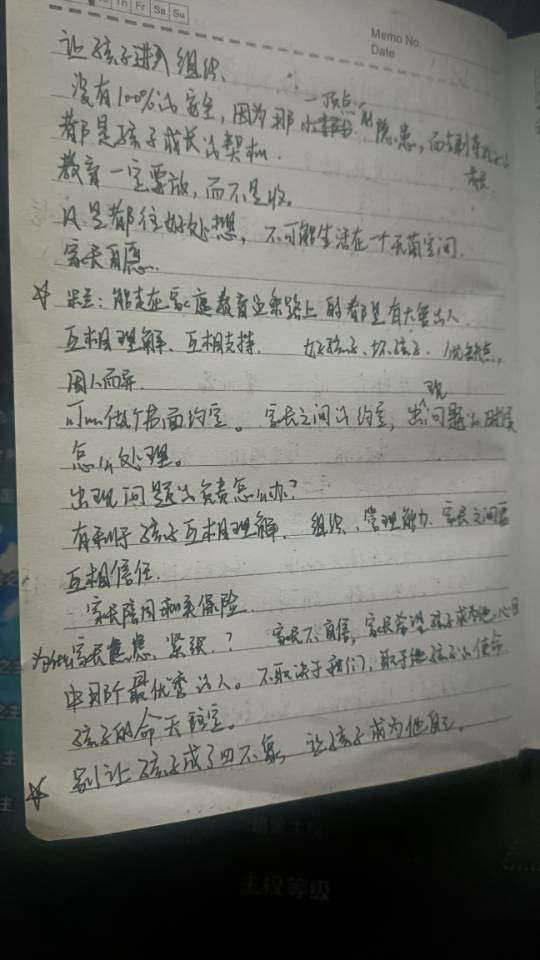 Th Fr Sa Su
Memo No.
Date
让孩子进入组织、
没有100%的安全，因为那一顶点的隐患，而
都是孩子成长的契机.
教育一定要放，而不是收。
凡是都往好处想，不可能生活在一个无菌空间.
家长自愿.
☆ 能走在家庭教育这条路上的都是有大爱的人.
互相理解、互相支持. 好孩子、坏孩子.
因人而异.
可以做个书面约定。家长之间的约定，出现问题的时候
怎么处理。
出现问题的负责怎么办？
有利于孩子互相理解、组织、管理能力.家长之间要
互相信任.
家长陪同和买保险.
为什么家长焦虑、紧张.？ 家长不自信，家长希望孩子成为他心目
中那个最优秀的人。不取决于我们，取于他孩子的使命
孩子的命天注定。
☆ 别让孩子成了四不象，让孩子成为他自己。
主权等级